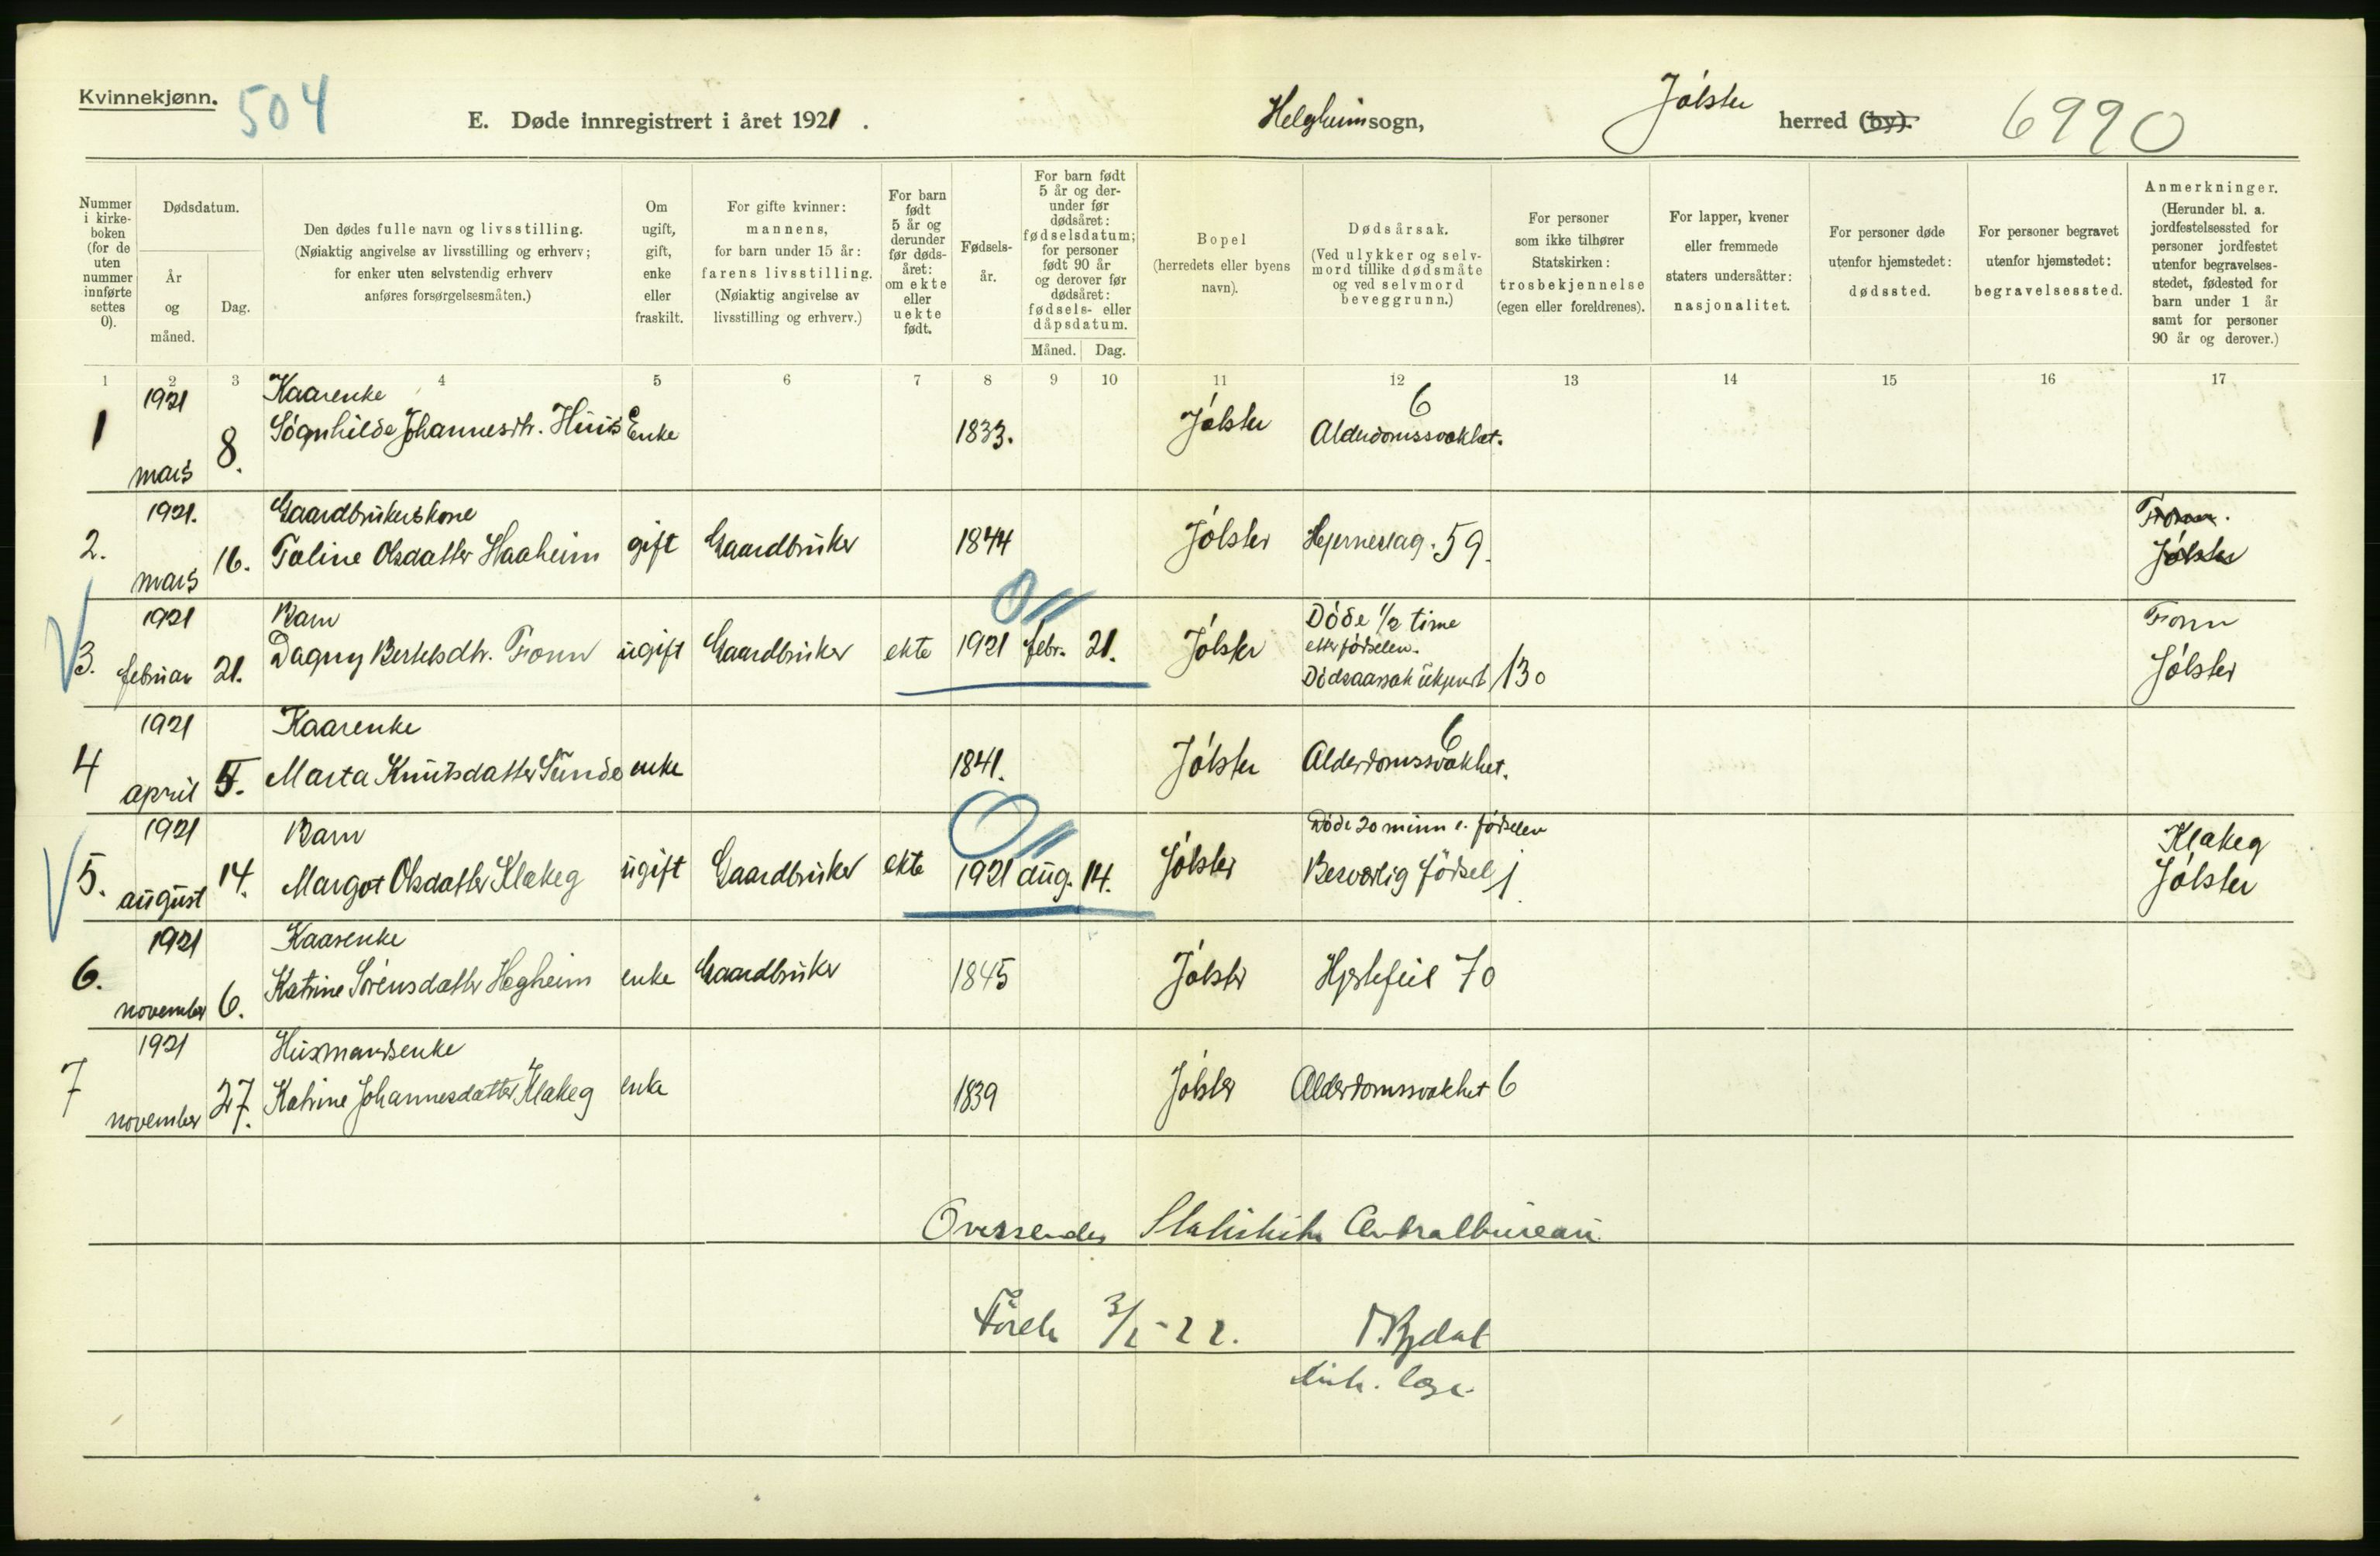 Kvinnekjønn.
504
E. Døde innregistrert i året 1921.
Helgheim sogn,
Jølster herred (by).
6990
Nummer i kirke-boken (for de uten nummer innførte settes 0).
Dødsdatum.
År og måned.
Dag.
Den dødes fulle navn og livsstilling.
(Nøiaktig angivelse av livsstilling og erhverv;
for enker uten selvstendig erhverv
anføres forsørgelsesmåten.)
Om ugift, gift, enke eller fraskilt.
For gifte kvinner:
mannens,
for barn under 15 år:
farens livsstilling.
(Nøiaktig angivelse av
livsstilling og erhverv.)
For barn født 5 år og derunder før døds-året: om ekte eller uekte født.
Fødsels-år.
For barn født 5 år og der-under før dødsåret: fødselsdatum; for personer født 90 år og derover før dødsåret: fødsels- eller dåpsdatum.
Måned.
Dag.
Bopel
(herredets eller byens
navn).
Dødsårsak.
(Ved ulykker og selv-
mord tillike dødsmåte
og ved selvmord
beveggrunn.)
For personer
som ikke tilhører
Statskirken:
trosbekjennelse
(egen eller foreldrenes).
For lapper, kvener
eller fremmede
staters undersåtter:
nasjonalitet.
For personer døde
utenfor hjemstedet:
dødssted.
For personer begravet
utenfor hjemstedet:
begravelsessted.
Anmerkninger.
(Herunder bl. a.
jordfestelsessted for
personer jordfestet
utenfor begravelses-
stedet, fødested for
barn under 1 år
samt for personer
90 år og derover.)
1 2 3 4 5 6 7 8 9 10 11 12 13 14 15 16 17
1921 Kaarenke 6
1 mars 8. Søgnhilde Johannesdtr. Huus Enke 1833. Jølster Alderdomssvakhet.
1921. Gaardbrukerskone Fonn.
2. mars 16. Taline Olsdatter Haaheim gift Gaardbruker 1844 Jølster Hjerneslag. 59. Jølster
1921 Barn Døde 1/2 time Fonn
3. februar 21. Dagny Bertelsdtr. Fonn ugift Gaardbruker ekte 1921 febr. 21. Jølster efter fødselen. Jølster
Dødsaarsak ukjent 130
1921 Kaarenke 6
4 april 5. Marta Knutsdatter Sunde enke 1841. Jølster Alderdomssvakhet.
1921 Barn Døde 20 minn e. fødselen Klakeg
5. august 14. Margot Olsdatter Klakeg ugift Gaardbruker ekte 1921 aug. 14. Jølster Besværlig fødsel Jølster
1921 Kaarenke
6. november 6. Katrine Sørensdatter Hegheim enke Gaardbruker 1845 Jølster Hjertefeil 70
1921 Husmandsenke
7 november 27. Katrine Johannesdatter Klakeg enke 1839 Jølster Alderdomssvakhet 6
Oversendes Statistiske Centralbureau
Förde 3/2-22.